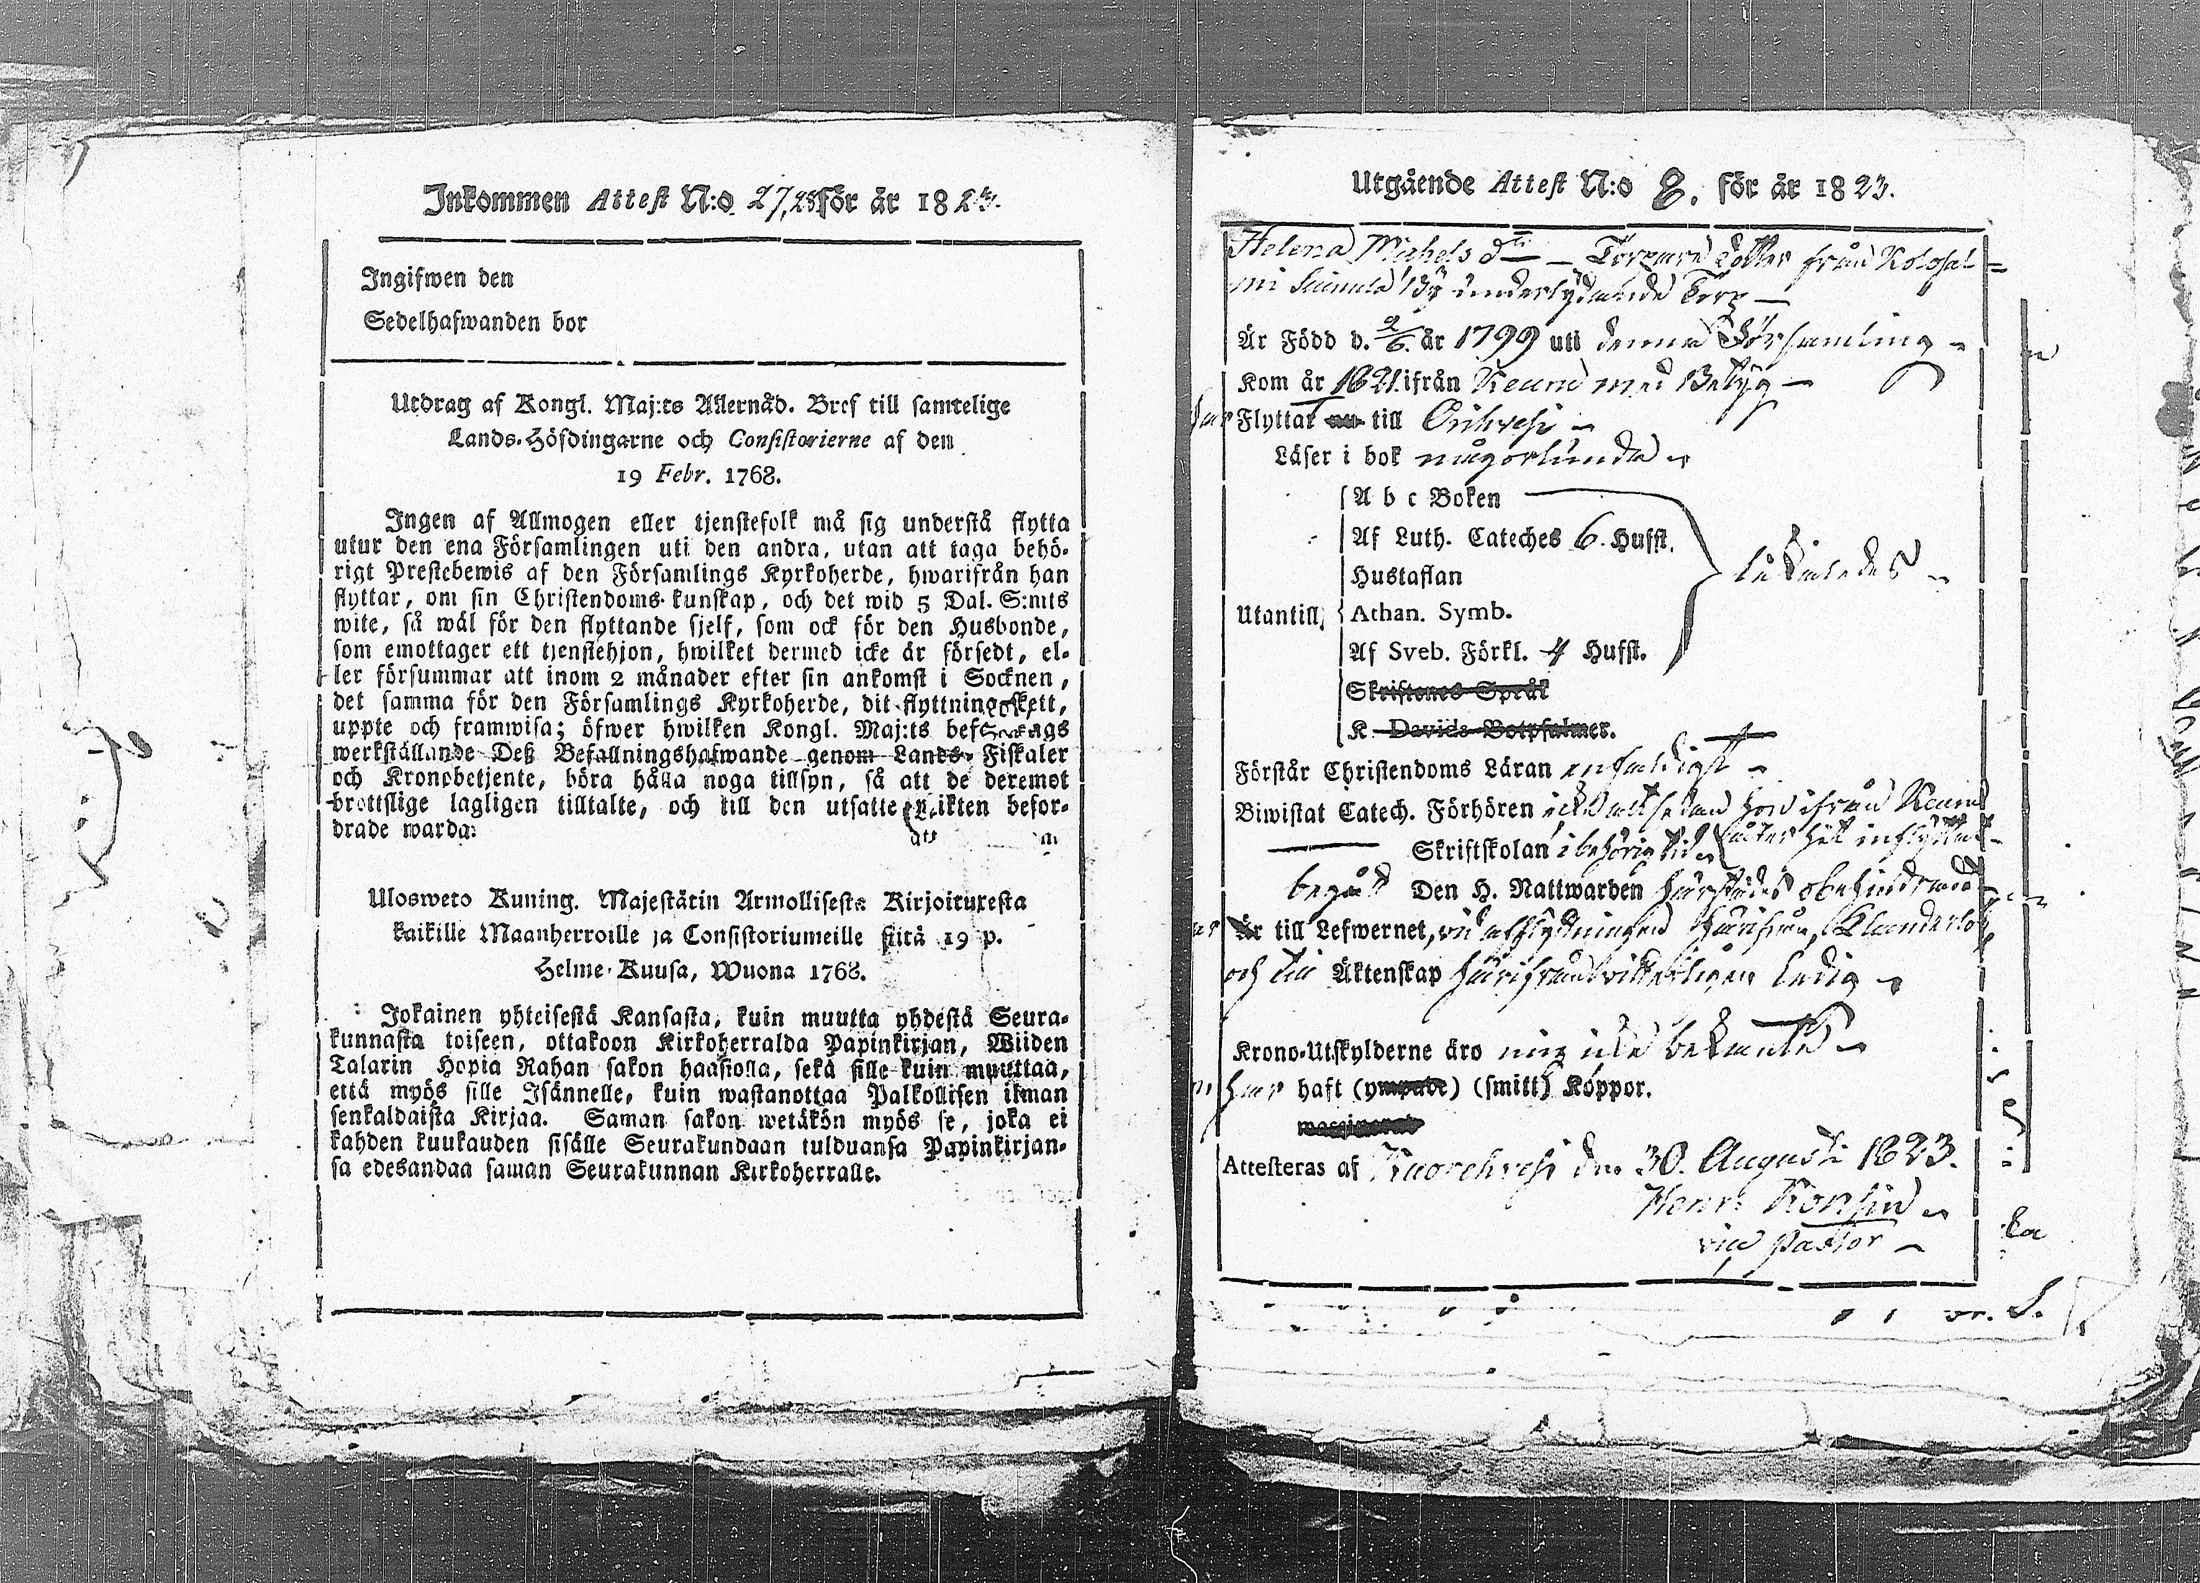 Inkommen Attest N:o 27,28 för år 1823.
Ingifwen den
Sedelhafwanden bor
Utdrag af Kongl. Maj:ts Allernåd. Bref till samtelige
Lands-Höfdingarne och Consistorierne af den
19 Febr. 1768.
Ingen af Allmogen eller tjenstefolk må sig understå flytta
utur den ena Församlingen uti den andra, utan att taga behö-
rigt Prestebewis af den Församlings Kyrkoherde, hwarifrån han
flyttar, om sin Christendoms-kunskap, och det wid 5 Dal. S:mts
wite, så wäl för den flyttande sjelf, som ock för den Husbonde,
som emottager ett tjenstehjon, hwilket dermed icke är försedt, el-
ler försummar att inom 2 månader efter sin ankomst i Socknen,
det samma för den Församlings Kyrkoherde, dit flyttning skett,
uppte och framwisa; öfwer hwilken Kongl. Maj:ts
werkställande Deß Befallningshafwande genom Lands-Fiskaler
och Kronobetjente, böra hålla noga tillsyn, så att de deremot
brottslige lagligen tilltalte, och till den utsatte plikten befor-
drade warda.
Ulosweto Kuning. Majestätin Armollisesta Kirjoituxesta
kaikille Maanherroille ja Consistoriumeille siitä 19 p.
Helme-Kuusa, Wuona 1768.
Jokainen yhteisestä Kansasta, kuin muutta yhdestä Seura-
kunnasta toiseen, ottakoon Kirkoherralda Papinkirjan, Wiiden
Talarin Hopia Rahan sakon haastolla, sekä sille kuin muuttaa,
että myös sille Isännelle, kuin wastanottaa Palkollisen ilman
senkaldaista Kirjaa. Saman sakon wetäkön myös se, joka ei
kahden kuukauden sisälle Seurakundaan tulduansa Papinkirjan-
sa edesandaa saman Seurakunnan Kirkoherralle.
Utgående Attest N:o 8. för år 1823.
Helena Michels dtr — Torpare dotter från Kolosal-
mi by underlydande Torp —
Är Född d. 2/6. år 1799 uti denna Församling
Kom år 1821. ifrån Keuru med Betyg
Flyttar nu till Orihvesi
Läser i bok någorlunda
Utantill
A b c Boken
Af Luth. Cateches 6. Hufst.
Hustaflan
Athan. Symb.
Af Sveb. Förkl. 4 Hufst.
likaledes
Skriftenes Språk
K. Davids Botpsalmer.
Förstår Christendoms Läran enfaldigt
Biwistat Catech. Förhören ifrån Keuru
Skriftskolan i behörig tid
begått Den H. Nattwarden härstädes obehindrad
Är till Lefwernet, vid afflyttningen härifrån,
och till Äktenskap härifrån ledig
Krono-Utskylderne äro mig icke bekante
haft (ympade) (smitt) Koppor.
waccinerad
Attesteras af Kuorehvesi den 30. Augusti 1823.
Henr. Konsin
vice pastor